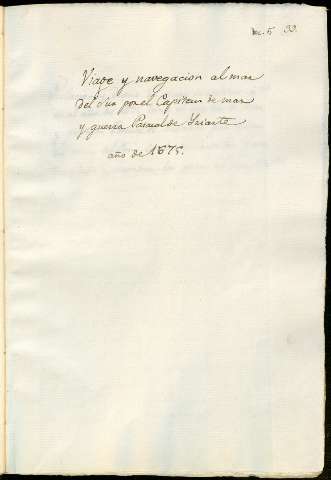 Viage y navegacion al mar
del Sur por el Capitan de mar
y guerra Pascual de Yriarte
año de 1675.